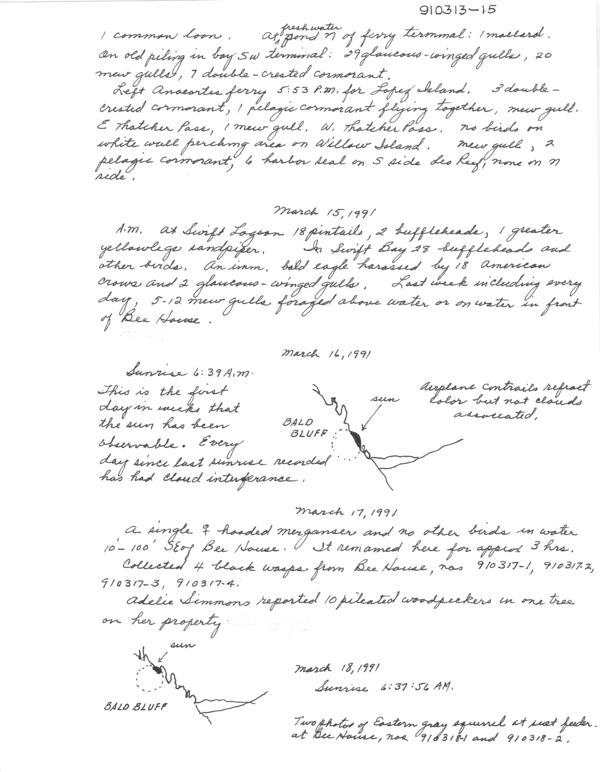 910313-15
1 common loon. At freshwater pond N of ferry terminal: 1 mallard.
On old piling in bay SW terminal: 29 glaucous-winged gulls, 20
mew gulls, 7 double-crested cormorant.
Left Anacortes ferry 5:53 P.M. for Lopez Island. 3 double-
crested cormorant, 1 pelagic cormorant flying together, mew gull.
E Thatcher Pass, 1 mew gull. W. Thatcher Pass. no birds on
white wall perching area on Willow Island. mew gull, 2
pelagic cormorant, 6 harbor seal on S side Leo Reef, none on N
side.
March 15, 1991
A.M. at Swift Lagoon 18 pintails, 2 buffleheads, 1 greater
yellowlegs sandpiper. In Swift Bay 28 buffleheads and
other birds. An imm. bald eagle harassed by 18 American
crows and 2 glaucous-winged gulls. Last week including every
day, 5-12 mew gulls foraged above water or on water in front
of Bee House.
March 16, 1991
Sunrise 6:39 A.M.
This is the first
day in weeks that
the sun has been
observable. Every
day since last sunrise recorded
has had cloud interferance.
sun
BALD
BLUFF
Airplane contrails refract
color but not clouds
associated.
March 17, 1991
A single ♀ hooded merganser and no other birds in water
10'-100' SE of Bee House. It remained here for approx 3 hrs.
Collected 4 black wasps from Bee House, nos 910317-1, 910317-2,
910317-3, 910317-4.
Adelie Simmons reported 10 pileated woodpeckers in one tree
on her property
sun
BALD BLUFF
March 18, 1991
Sunrise 6:37:56 AM.
Two photos of Eastern gray squirrel at suet feeder.
at Bee House, nos 910318-1 and 910318-2.